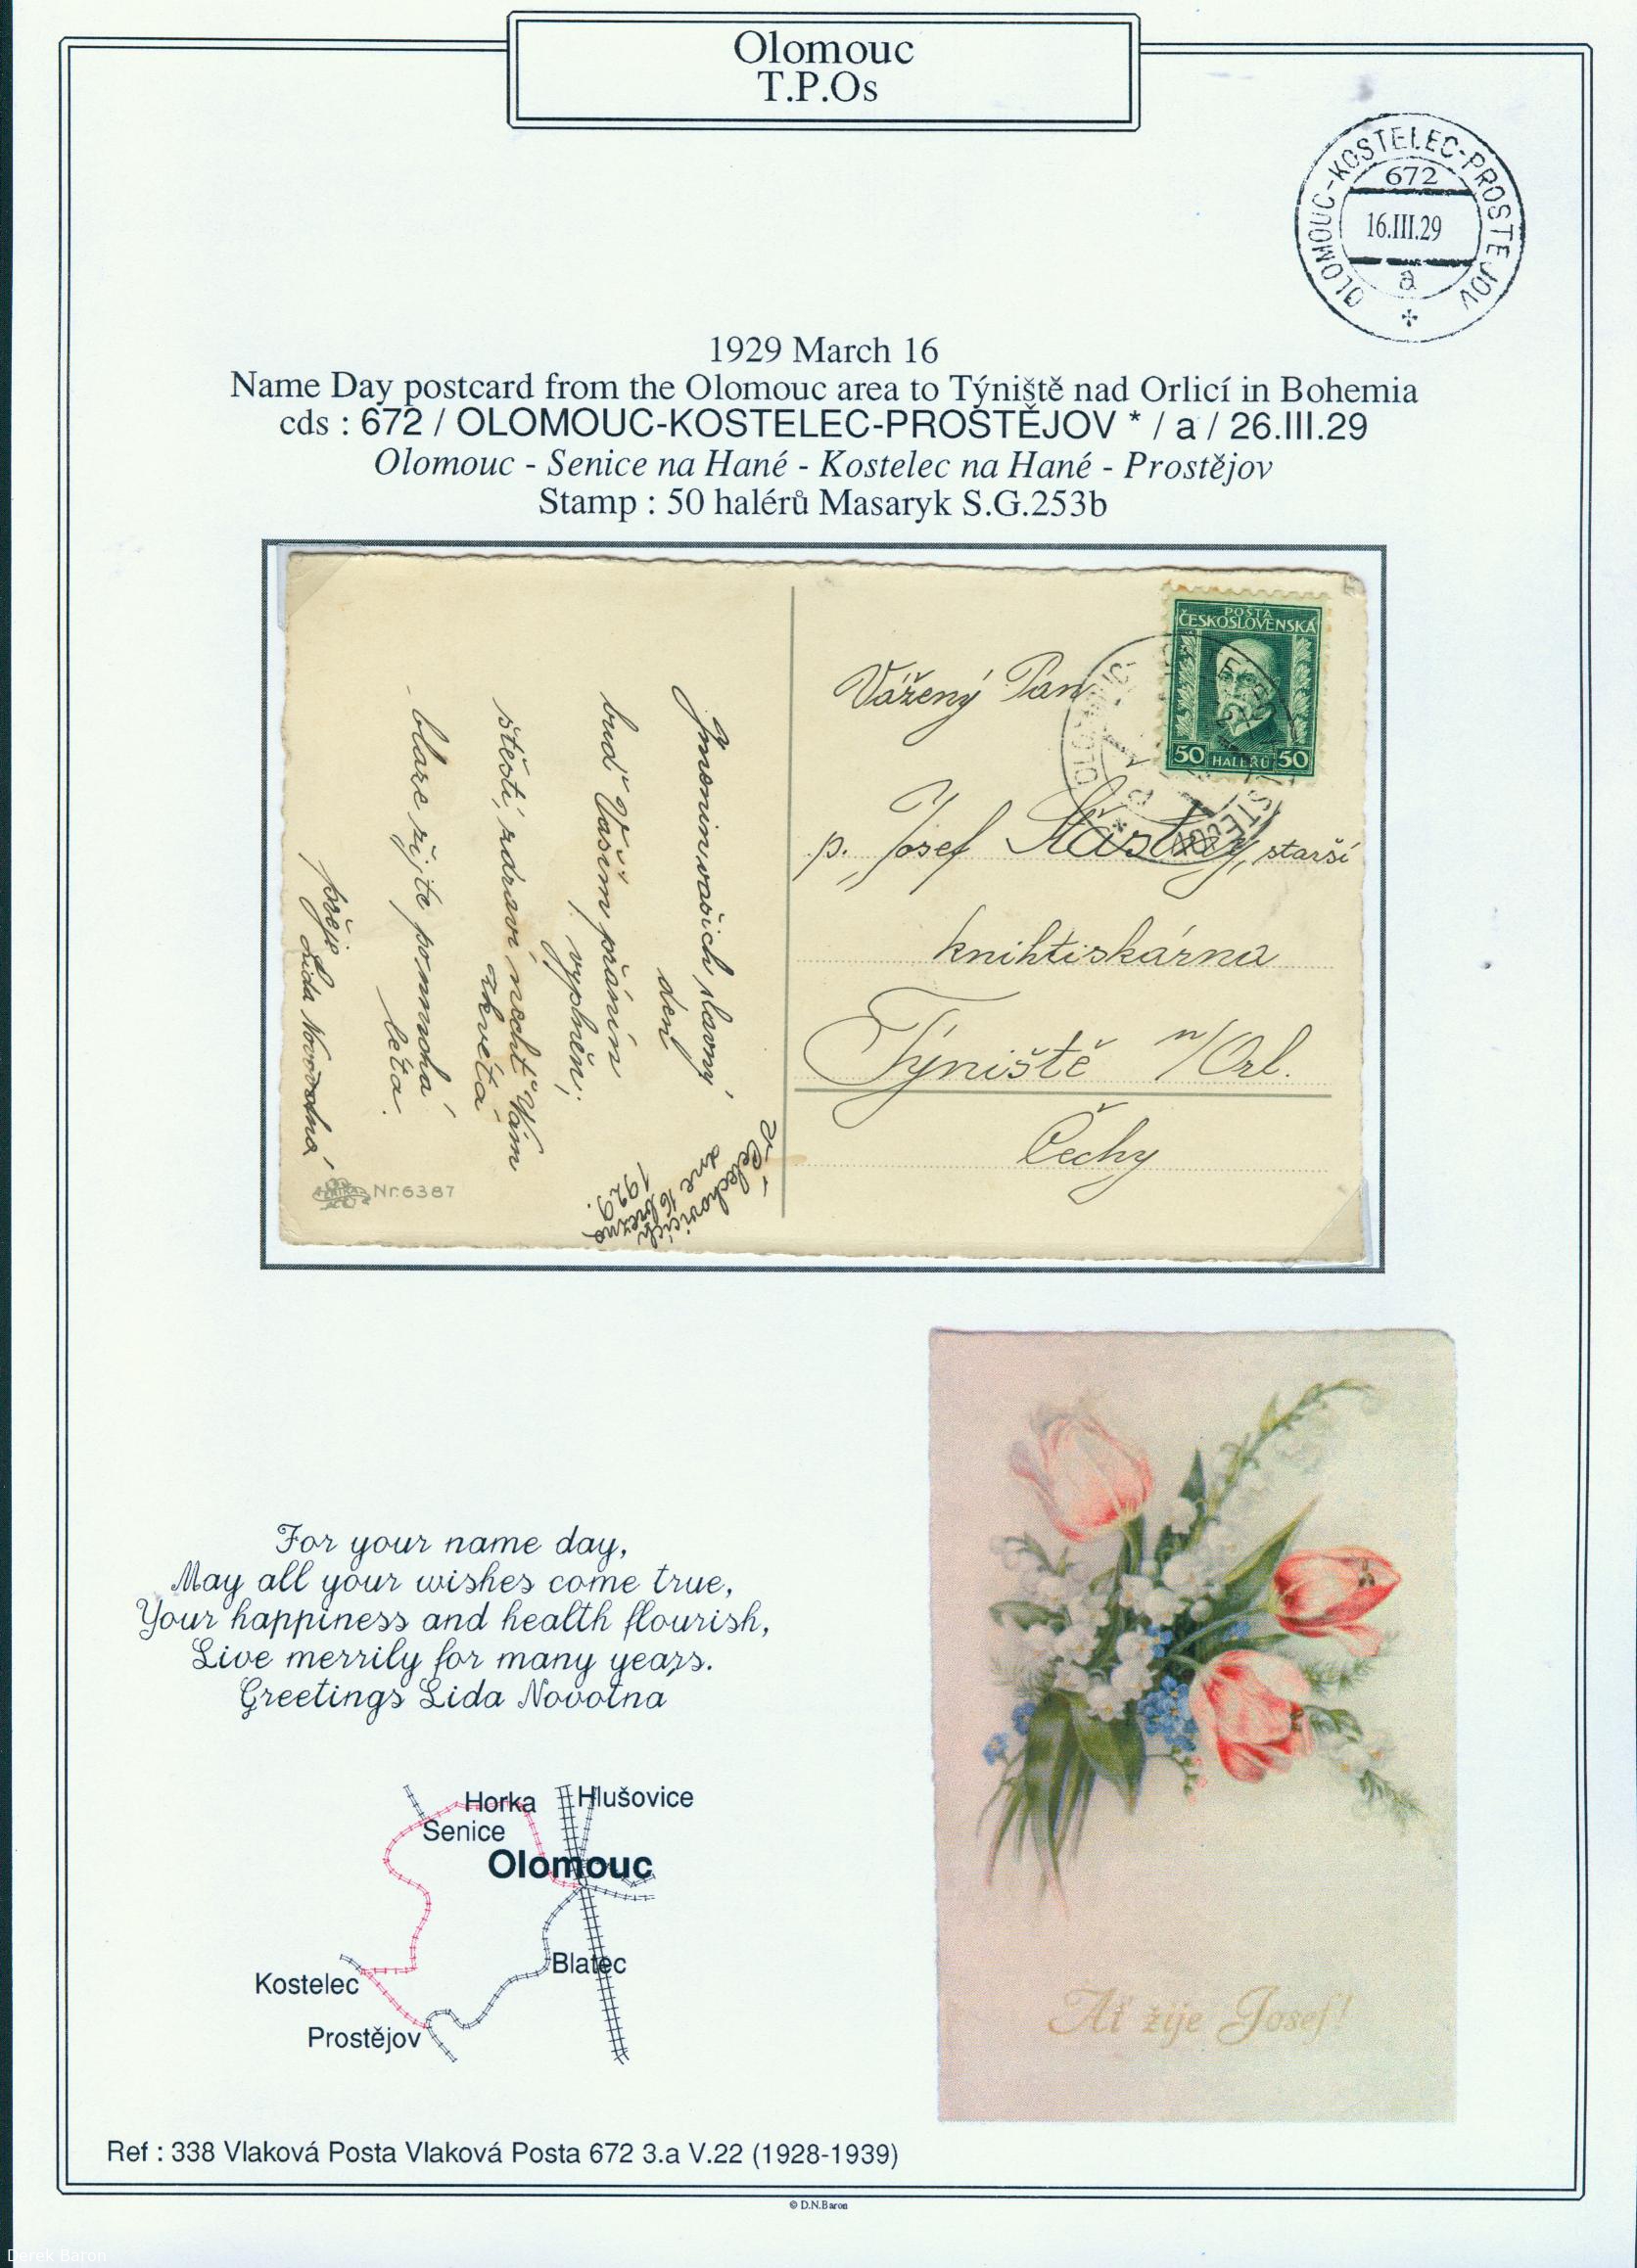 Olomouc
T.P.Os
OLOMOUC-KOSTELEC-PROSTĚJOV
672
16.III.29
a
1929 March 16
Name Day postcard from the Olomouc area to Týniště nad Orlicí in Bohemia
cds : 672 / OLOMOUC-KOSTELEC-PROSTĚJOV * / a / 26.III.29
Olomouc - Senice na Hané - Kostelec na Hané - Prostějov
Stamp : 50 halérů Masaryk S.G.253b
POŠTA
ČESKOSLOVENSKÁ
50 HALÉŘŮ 50
Vážený Pan
p. Josef Šťastný, starší
knihtiskárna
Týniště n/Orl.
Čechy
V Čelechovicích
dne 16 března
1929.
Jmenin vašich slavný
den
buď Vaším přáním
vyplnění;
štěstí, zdraví nechť Vám
zkvétá
blaze žijte po mnohá
léta.
přeje
Lida Novotná
Nr. 6387
For your name day,
May all your wishes come true,
Your happiness and health flourish,
Live merrily for many years.
Greetings Lida Novotna
Horka
Hlušovice
Senice
Olomouc
Blatec
Kostelec
Prostějov
Ať žije Josef!
Ref : 338 Vlaková Posta Vlaková Posta 672 3.a V.22 (1928-1939)
© D.N.Baron
Derek Baron